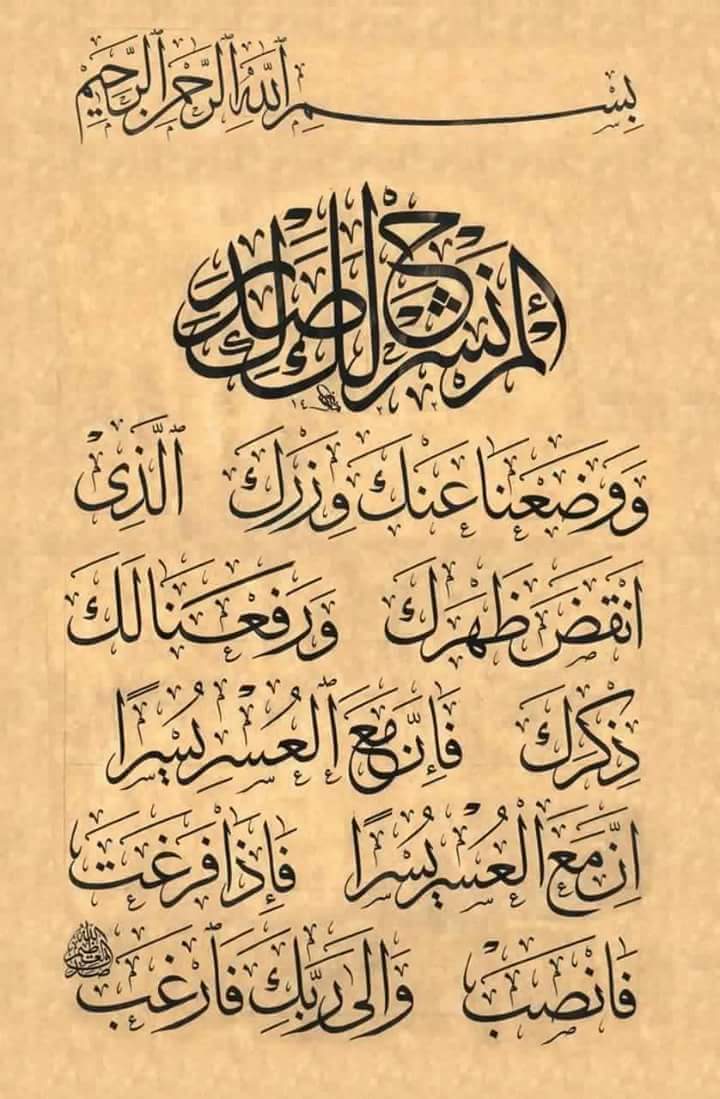 بِسْمِ ٱللَّهِ ٱلرَّحْمَٰنِ ٱلرَّحِيمِ
أَلَمْ نَشْرَحْ لَكَ صَدْرَكَ
وَوَضَعْنَا عَنْكَ وِزْرَكَ ٱلَّذِى
اَنْقَضَ ظَهْرَكَ وَرَفَعْنَا لَكَ
ذِكْرَكَ فَاِنَّ مَعَ ٱلْعُسْرِ يُسْرًا
اِنَّ مَعَ الْعُسْرِ يُسْرًا فَاِذَا فَرَغْتَ
فَانْصَبْ وَاِلٰى رَبِّكَ فَٱرْغَبْ
صدق الله العظيم